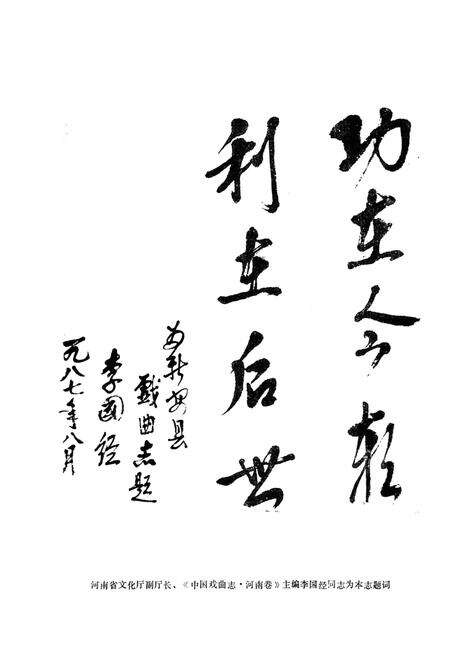 功在今朝
利在后世
为新安县
戲曲志题
李國经
一九八七年八月
河南省文化厅副厅长、《中国戏曲志·河南卷》主编李国经同志为本志题词